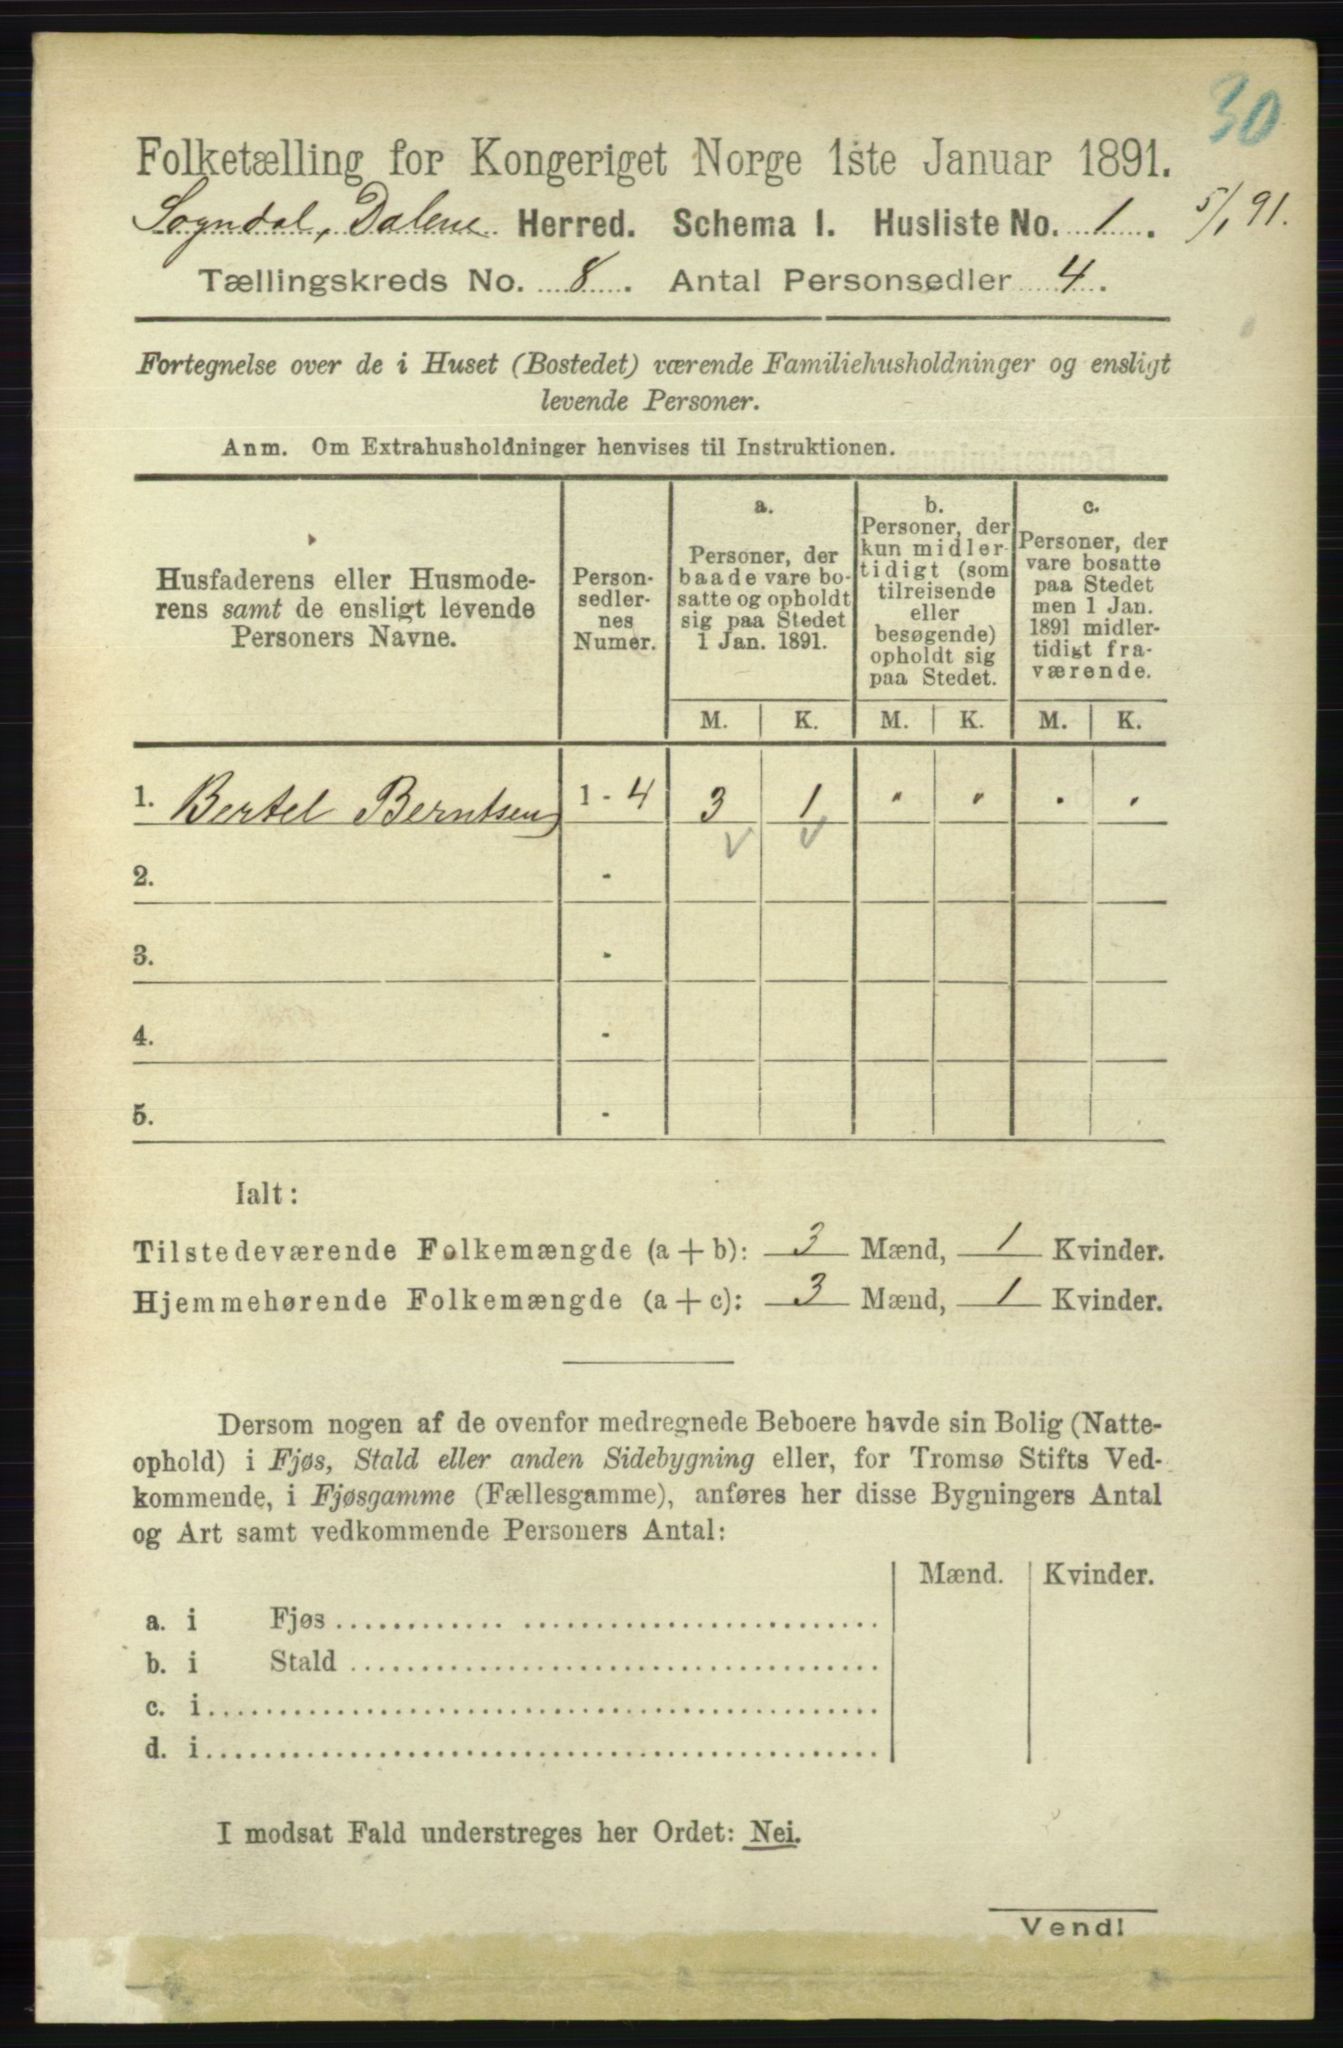 30
Folketælling for Kongeriget Norge 1ste Januar 1891.
Sogndal, Dalene Herred. Schema I. Husliste No. 1. 5/1 91.
Tællingskreds No. 8. Antal Personsedler 4.
Fortegnelse over de i Huset (Bostedet) værende Familiehusholdninger og ensligt
levende Personer.
Anm. Om Extrahusholdninger henvises til Instruktionen.
Husfaderens eller Husmode-
rens samt de ensligt levende
Personers Navne.
Person-
sedler-
nes
Numer.
a.
Personer, der
baade vare bo-
satte og opholdt
sig paa Stedet
1 Jan. 1891.
b.
Personer, der
kun midler-
tidigt (som
tilreisende
eller
besøgende)
opholdt sig
paa Stedet.
c.
Personer, der
vare bosatte
paa Stedet
men 1 Jan.
1891 midler-
tidigt fra-
værende.
M. K. M. K. M. K.
1. Bertel Berntsen 1 - 4 3 1 " " " "
2. -
3. -
4. -
5. -
Ialt:
Tilstedeværende Folkemængde (a + b): 3 Mænd, 1 Kvinder.
Hjemmehørende Folkemængde (a + c): 3 Mænd, 1 Kvinder.
Dersom nogen af de ovenfor medregnede Beboere havde sin Bolig (Natte-
ophold) i Fjøs, Stald eller anden Sidebygning eller, for Tromsø Stifts Ved-
kommende, i Fjøsgamme (Fællesgamme), anføres her disse Bygningers Antal
og Art samt vedkommende Personers Antal:
Mænd. Kvinder.
a. i Fjøs
b. i Stald
c. i
d. i
I modsat Fald understreges her Ordet: Nei.
Vend!